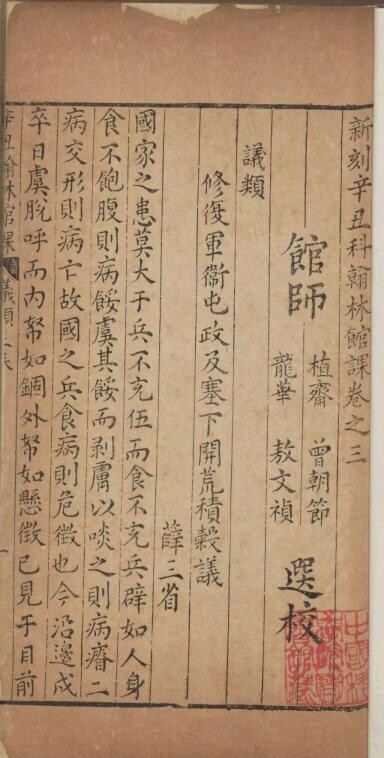 新刻辛丑科翰林館課卷之三
館師
植齋 曾朝節
龍華 敖文禎
選校
議類
修復軍衞屯政及塞下開荒積穀議
薛三省
國家之患莫大于兵不充伍而食不充兵辟如人身
食不飽腹則病餒虞其餒而剥膚以啖之則病瘠二
病交形則病亡故國之兵食病則危徵也今沿邊戍
卒日虞脫呼而内帑如錮外帑如懸徵已見于目前
辛丑翰林館課
議類